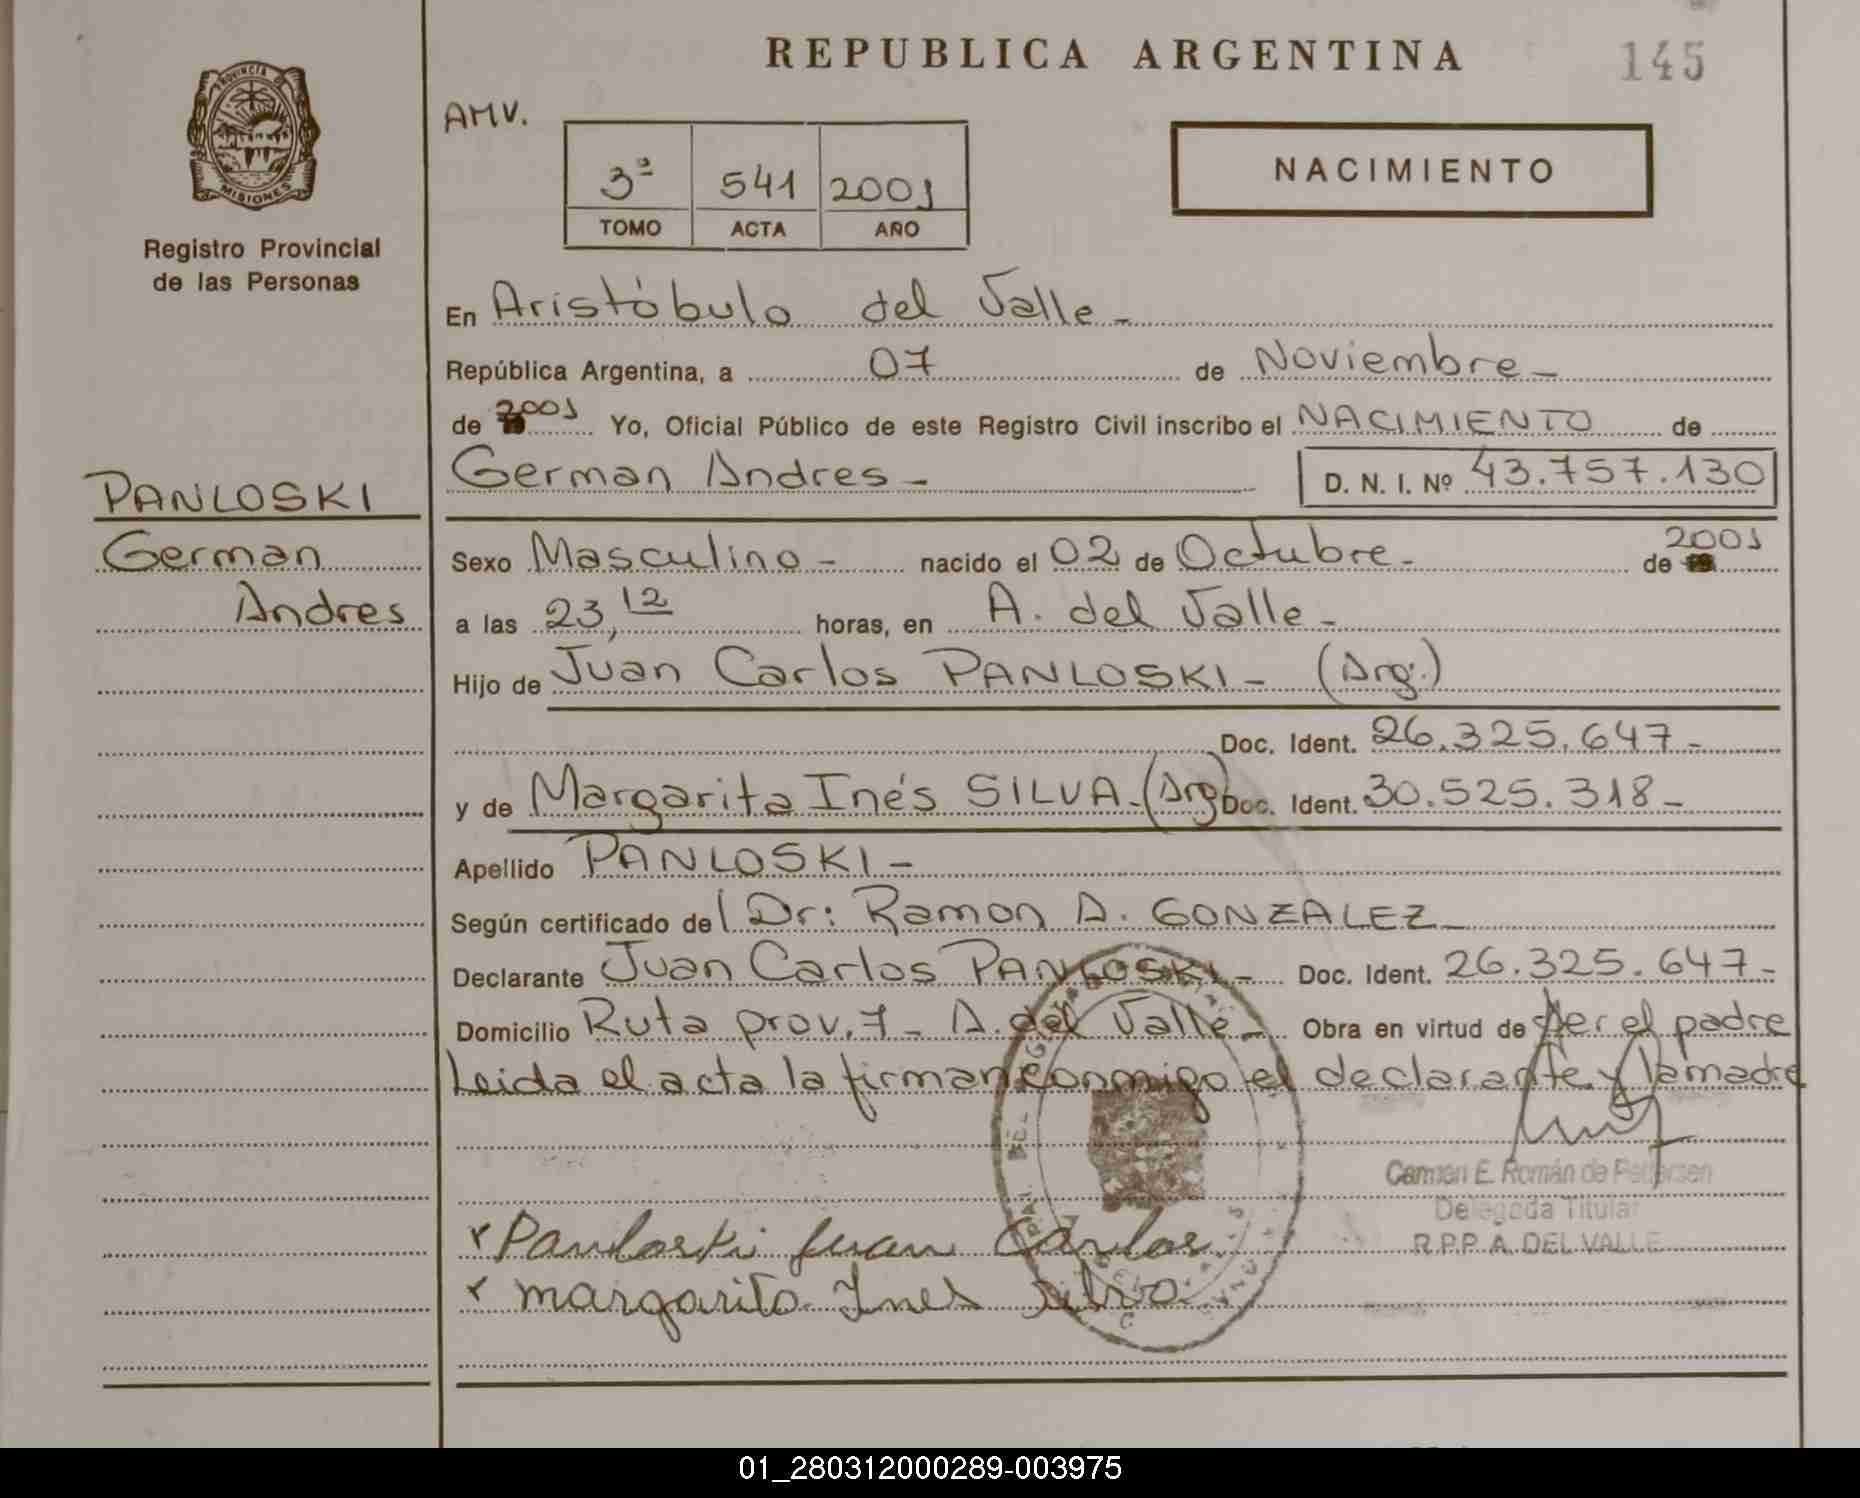 REPUBLICA ARGENTINA
145
PROVINCIA DE
MISIONES
Registro Provincial
de las Personas
AMV.
3ª 541 2001
TOMO ACTA AÑO
NACIMIENTO
En Aristóbulo del Valle -
República Argentina, a 07 de Noviembre -
de 2001 Yo, Oficial Público de este Registro Civil inscribo el NACIMIENTO de
German Andres - D. N. I. Nº 43.757.130
PANLOSKI
German
Andres
Sexo Masculino - nacido el 02 de Octubre - de 2001
a las 23,12 horas, en A. del Valle -
Hijo de Juan Carlos PANLOSKI - (Arg.)
Doc. Ident. 26.325.647 -
y de Margarita Inés SILVA - (Arg) Doc. Ident. 30.525.318 -
Apellido PANLOSKI -
Según certificado del Dr: Ramon A. GONZALEZ
Declarante Juan Carlos PANLOSKI - Doc. Ident. 26.325.647 -
Domicilio Ruta prov. 7 - A. del Valle - Obra en virtud de ser el padre
Leida el acta la firman conmigo el declarante y la madre
Carmen E. Román de Pedersen
Delegada Titular
R.P.P. A. DEL VALLE
x Panloski Juan Carlos
x margarita Ines silva
01_280312000289-003975